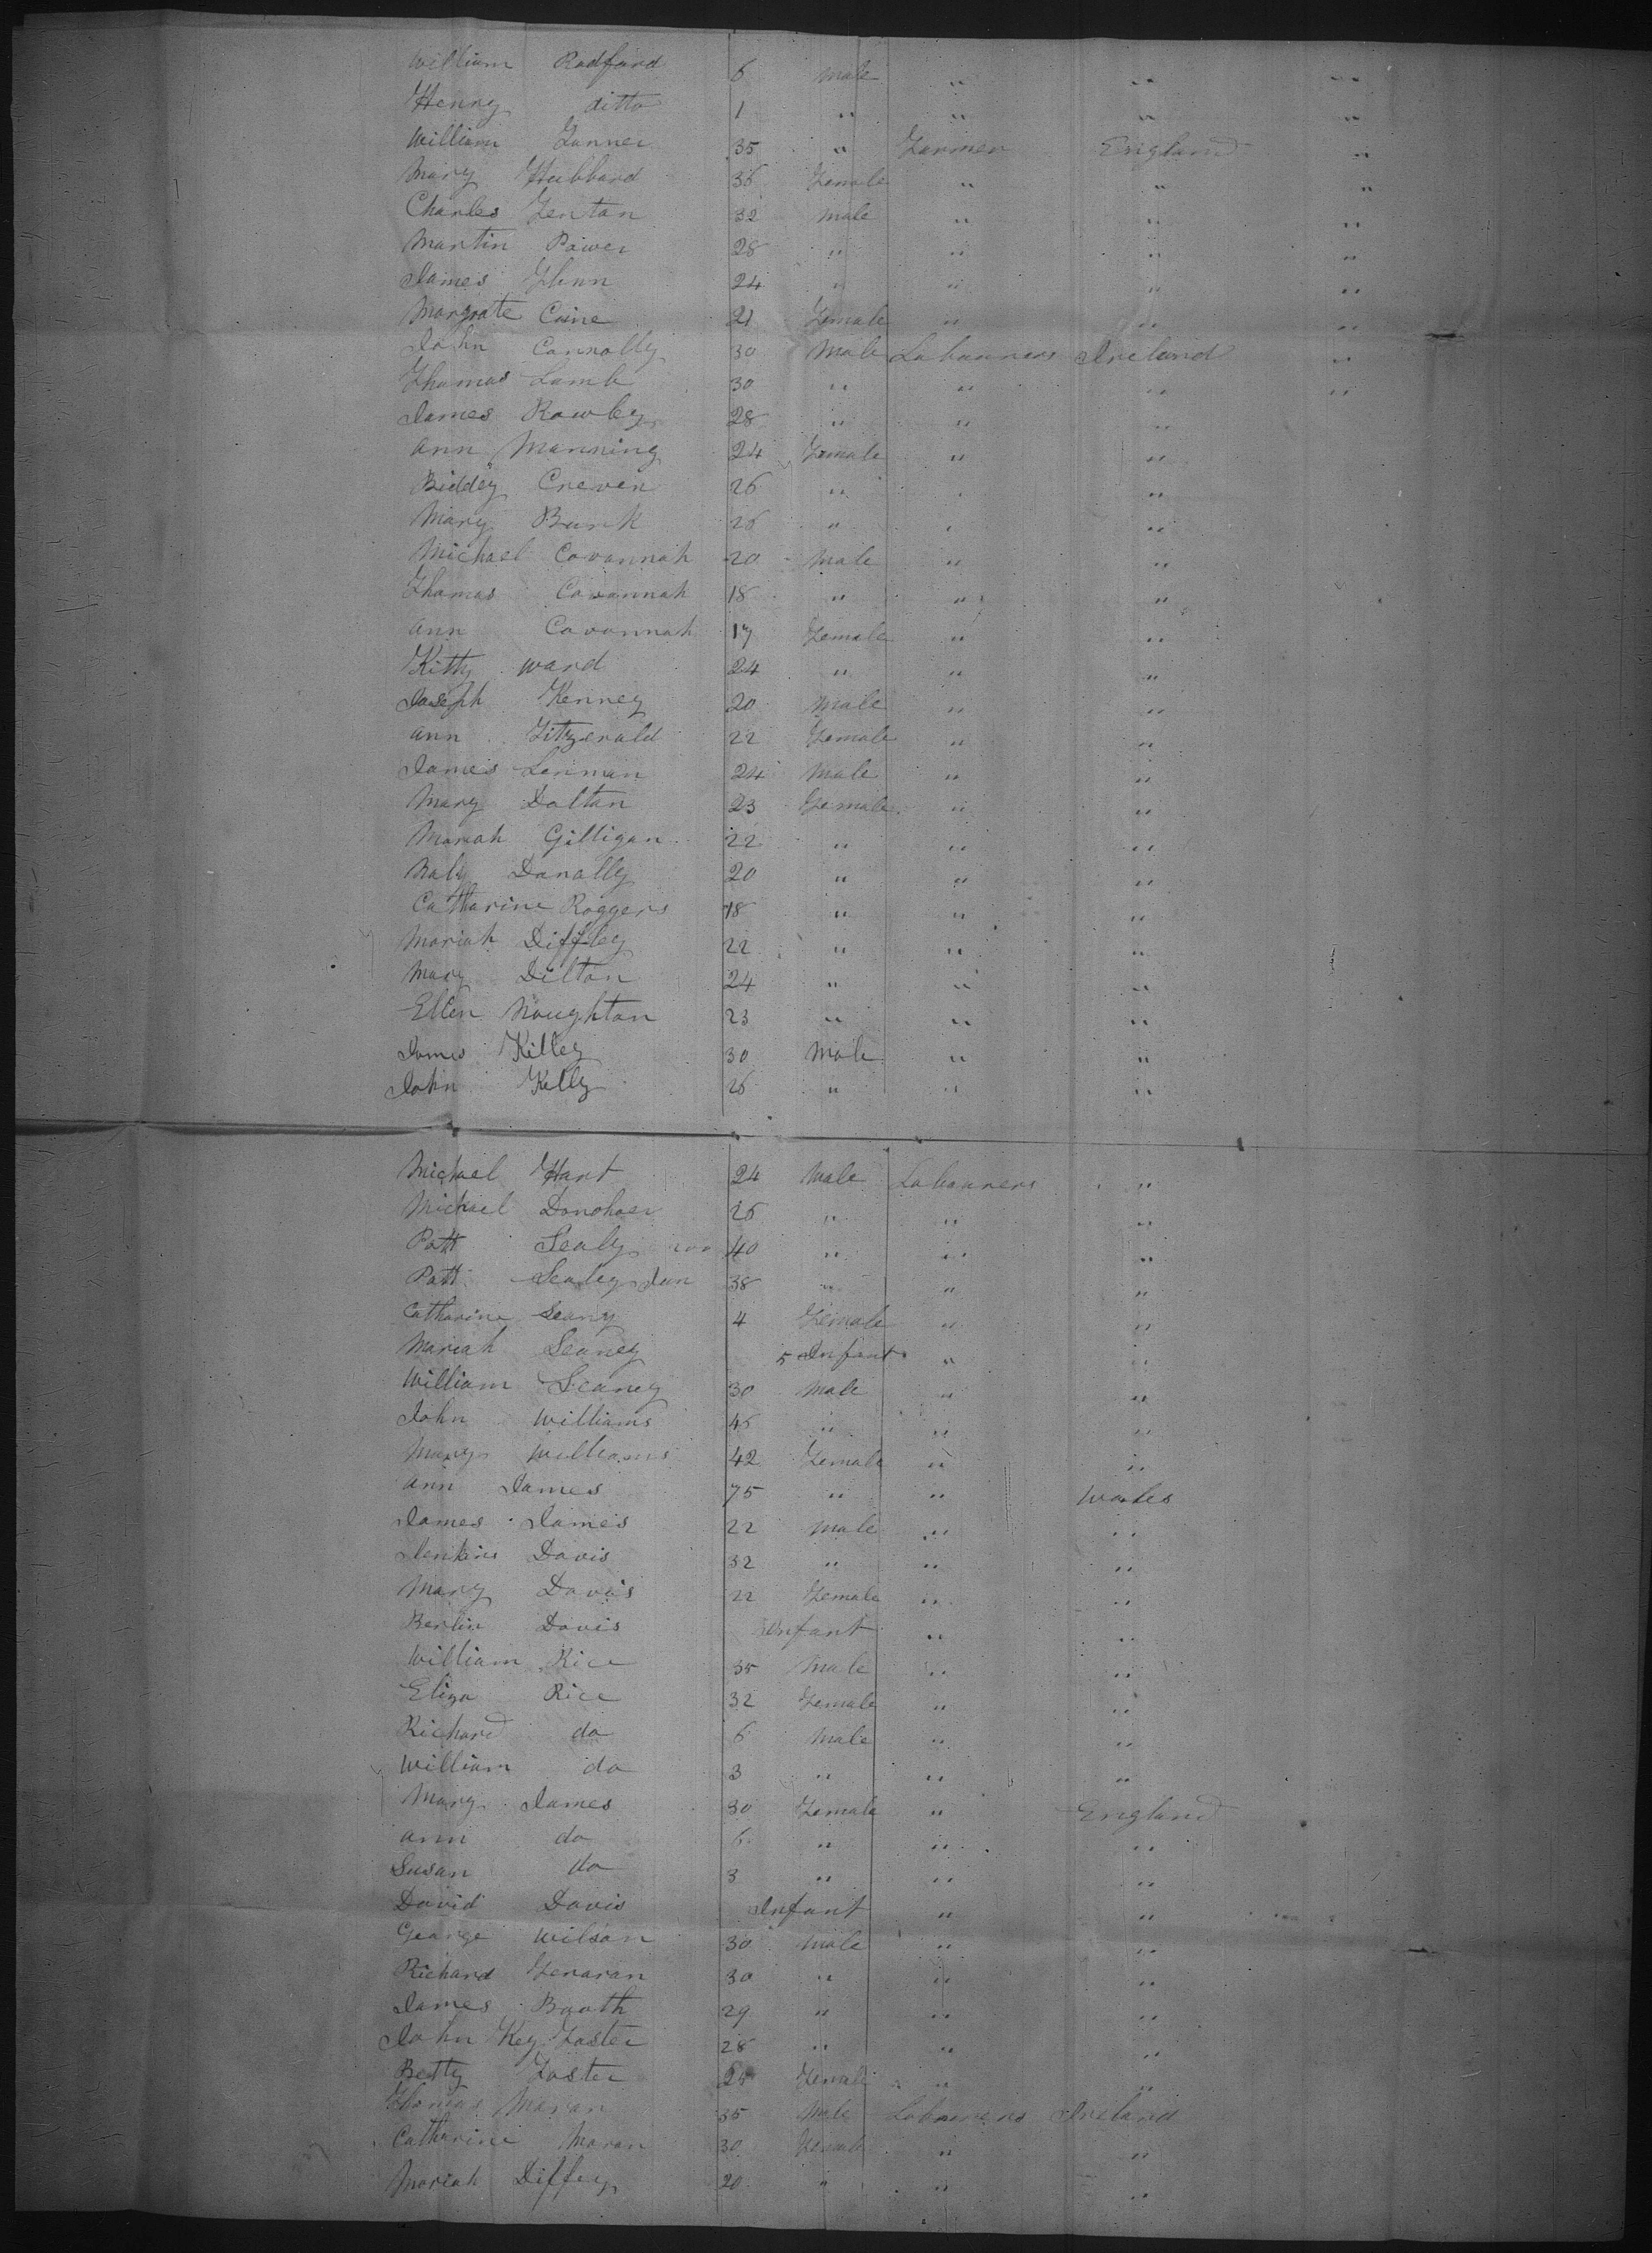 William Radford 6 male " " "
Henry ditto 1 " " " "
William Funner 35 " Farmer England "
Mary Hubbard 36 Female " " "
Charles Fentan 32 male " " "
Martin Power 28 " " " "
James Flinn 24 " " " "
Margrate Caine 21 Female " " "
John Connolly 30 Male Labourers Ireland "
Thomas Lamb 30 " " " "
James Rowley 28 " " "
Ann Manning 24 Female " "
Biddey Creven 26 " " "
Mary Burk 26 " " "
Michael Cavannah 20 Male " "
Thomas Cavannah 18 " " "
Ann Cavannah 17 Female " "
Kitty Ward 24 " " "
Joseph Kenney 20 Male " "
Ann Fitzgerald 22 Female " "
James Lenman 24 Male " "
Mary Daltan 23 Female " "
Mariah Gilligan 22 " " "
Danally 20 " " "
Catharine Roggers 18 " " "
Mariah Diffley 22 " " "
Mary Diltan 24 " " "
Ellen Noughtan 23 " " "
James Killey 30 Male " "
John Kelly 26 " " "
Michael Hart 24 Male Labourers "
Michael Donohoer 26 " " "
Patt Sealy 40 " " "
Patt Sealey Jun 38 " " "
Catharine Seany 4 Female " "
Mariah Seaney 5 Infant " "
William Seaney 30 Male " "
John Williams 46 " " "
Mary Williams 42 Female " "
Ann James 75 " " Wales
James James 22 Male " "
Jenkins Davis 32 " " "
Mary Davis 22 Female " "
Davis Infant " "
William Rice 35 Male " "
Eliza Rice 32 Female " "
Richard do 6 Male " "
William do 3 " " "
Mary James 30 Female " England
Ann do 6 " " "
Susan do 3 " " "
David Davis Infant " "
George Wilson 30 Male " "
Richard Feraran 30 " " "
James Booth 29 " " "
John Key Foster 28 " " "
Betty Foster 25 Female " "
Thomas Maran 35 Male Labourers Ireland
Catharine Maran 30 Female " "
Mariah Diffey 20 " " "